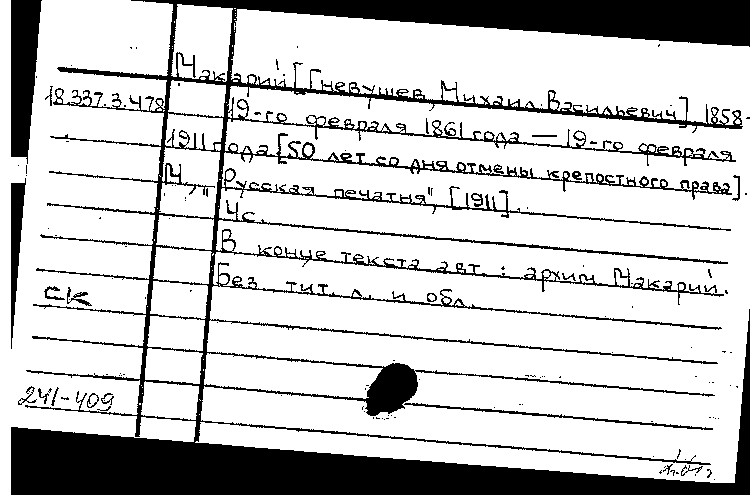 Макарий [Гневушев, Михаил Васильевич], 1858-
18.337.3.478
19-го февраля 1861 года — 19-го февраля
1911 года [50 лет со дня отмены крепостного права].
М., "Русская печатня", [1911].
4с.
В конце текста авт.: архим Макарий.
Без тит. л. и обл.
СК
241-409